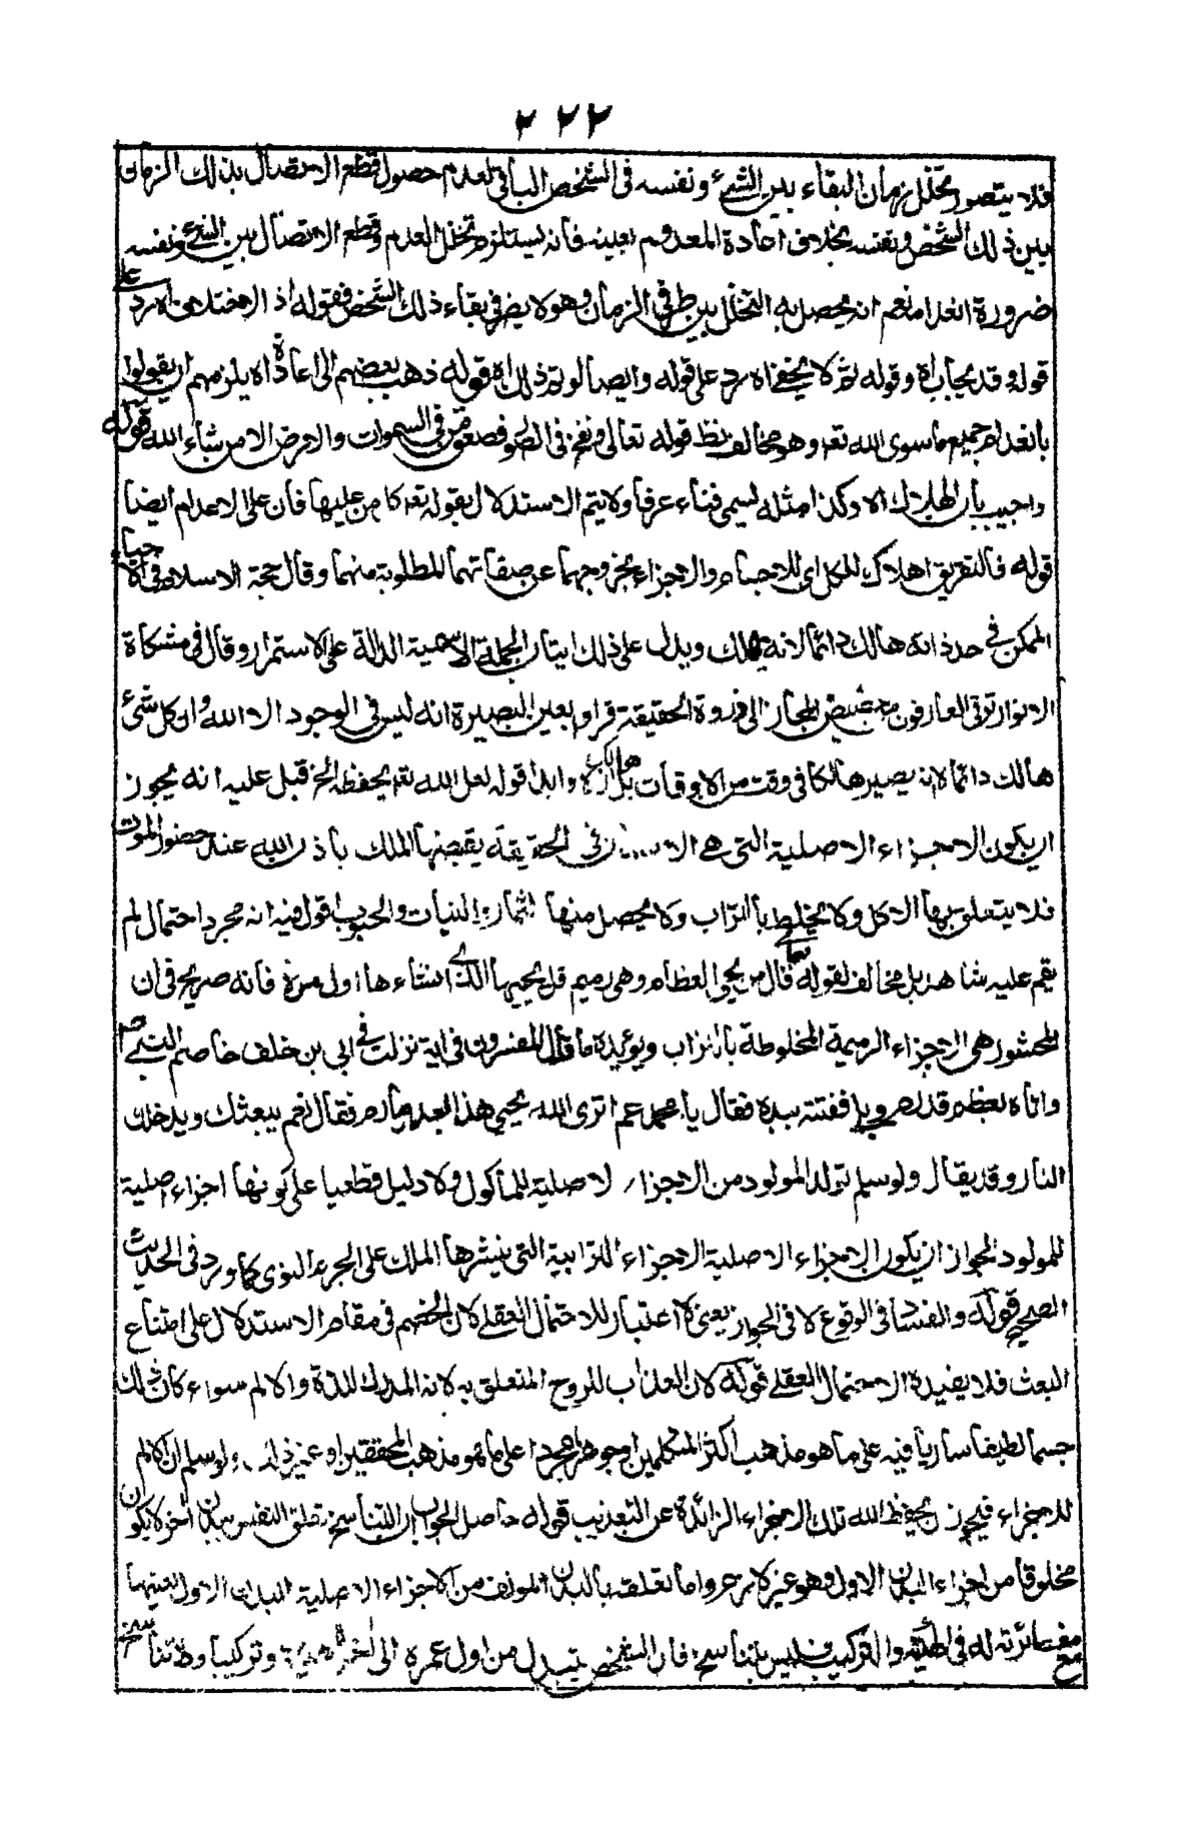 ٢٢٢
فلا يتصور تخلل زمان البقاء بين الشئ ونفسه فى الشخص الباقى لعدم حصول قطع الاتصال بذلك الزمان
بين ذلك الشخص ونفسه بخلاف اعادة المعدوم بعينه فانه يستلزم تخلل العدم وقطع الاتصال بين الشئ ونفسه
ضرورة انعدامه نعم انه يحصل به التخلل بين طرفى الزمان وهو لا يضر فى بقاء ذلك الشخص فقوله اذ الاختلاف اه رد على
قوله وقد يجاب اه وقوله ثم لا يخفى اه رد على قوله وايضا لو تم ذلك اه قوله ذهب بعضهم الى اعادة اه يلزمهم ان يقولوا
بانعدام جميع ما سوى الله تعه وهو مخالف لظ قوله تعالى ونفخ فى الصور فصعق من فى السموات والارض الا من شاء الله قوله
واجيب بان الهلاك اه وكذا مثله يسمى فناء عرفا ولا يتم الاستدلال بقوله تعه كل من عليها فان على الاعدام ايضا
قوله فالتفريق اهلاك للكل اى للاجسام والاجزاء بخروجهما عن صفاتهما المطلوبة منهما وقال حجة الاسلام فى الاحياء
الممكن فى حد ذاته هالك دائما لا انه يهلك ويدل على ذلك ايثار الجملة الاسمية الدالة على الاستمرار وقال فى مشكاة
الانوار ترقى العارفون من حضيض المجاز الى ذروة الحقيقة فراوا بعين البصيرة انه ليس فى الوجود الا الله وان كل شئ
هالك دائما لا انه يصير هالكا فى وقت من الاوقات بل هالك ازلا وابدا قوله لعل الله تعه يحفظه الخ قيل عليه انه يجوز
ان يكون الاجزاء الاصلية التى هى الانسان فى الحقيقة يقبضها الملك باذن الله عند حضور الموت
فلا يتعلق بها الاكل ولا يختلط بالتراب ولا يحصل منها الثمار والنبات والحبوب اقول فيه انه مجرد احتمال لم
يقم عليه شاهد بل مخالف لقوله تعالى قال من يحيى العظام وهى رميم قل يحييها الذى انشاءها اول مرة فانه صريح فى ان
المحشور هى الاجزاء الرميمة المخلوطة بالتراب ويؤيده ما قال المفسرون فى اية نزلت فى ابى بن خلف خاصم النبى صم
واتاه بعظم قد رم وبلى ففتته بيده فقال يا محمد عم اترى الله يحيى هذا بعد ما رم فقال نعم يبعثك ويدخلك
النار وقد يقال ولو سلم تولد المولود من الاجزاء الاصلية للمأكول ولا دليل قطعيا على كونها اجزاء اصلية
للمولود لجواز ان يكون الاجزاء الاصلية الاجزاء الترابية التى ينشرها الملك على كما ورد فى الحديث
الصحيح قوله والفساد فى الوقوع لا فى الجواز يعنى لا اعتبار للاحتمال العقلى لان الخصم فى مقام الاستدلال على امتناع
البعث فلا يفيده الاحتمال العقلى قوله لان العذاب للروح المتعلق به لانه المدرك للذة والالم سواء كان ذلك
جسما لطيفا ساريا فيه على ما هو مذهب اكثر المتكلمين او جوهرا مجردا على ما هو مذهب المحققين او غير ذلك ولو سلم ان الالم
للاجزاء فيجوز ان يحفظ الله تلك الاجزاء الزائدة عن التعذيب قوله حاصل الجواب ان التناسخ تعلق النفس ببدن اخر لا يكون
مخلوقا من اجزاء البدن الاول وهو غير لازم واما تعلقه بالبدن المؤلف من الاجزاء الاصلية للبدن الاول بعينها
مع مغائرته له فى الهيئة والتركيب فليس بتناسخ فان الشخص يتبدل من اول عمره الى اخره هيئة وتركيبا ولا تناسخ